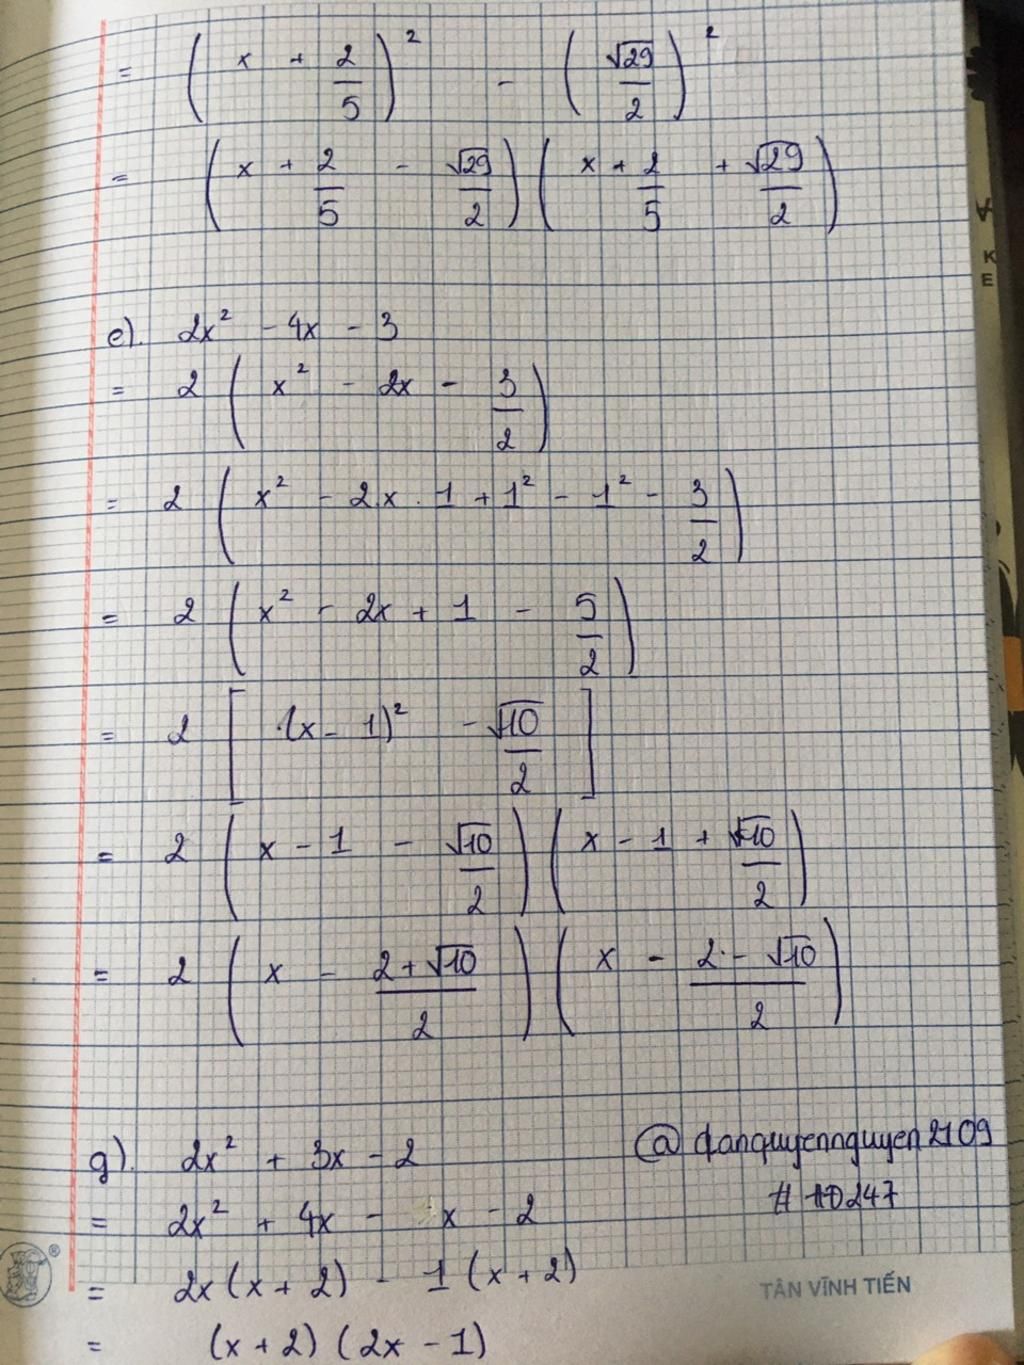 = (x + 2/5)² - (√29/2)²
= (x + 2/5 - √29/2)(x + 2/5 + √29/2)
e). 2x² - 4x - 3
= 2(x² - 2x - 3/2)
= 2(x² - 2.x.1 + 1² - 1² - 3/2)
= 2(x² - 2x + 1 - 5/2)
= 2[(x - 1)² - √10/2]
= 2(x - 1 - √10/2)(x - 1 + √10/2)
= 2(x - (2+√10)/2)(x - (2-√10)/2)
g). 2x² + 3x - 2
@danquyennguyen2109
= 2x² + 4x - x - 2
#10247
= 2x(x + 2) - 1(x + 2)
TÂN VĨNH TIẾN
= (x + 2)(2x - 1)
K
E
®